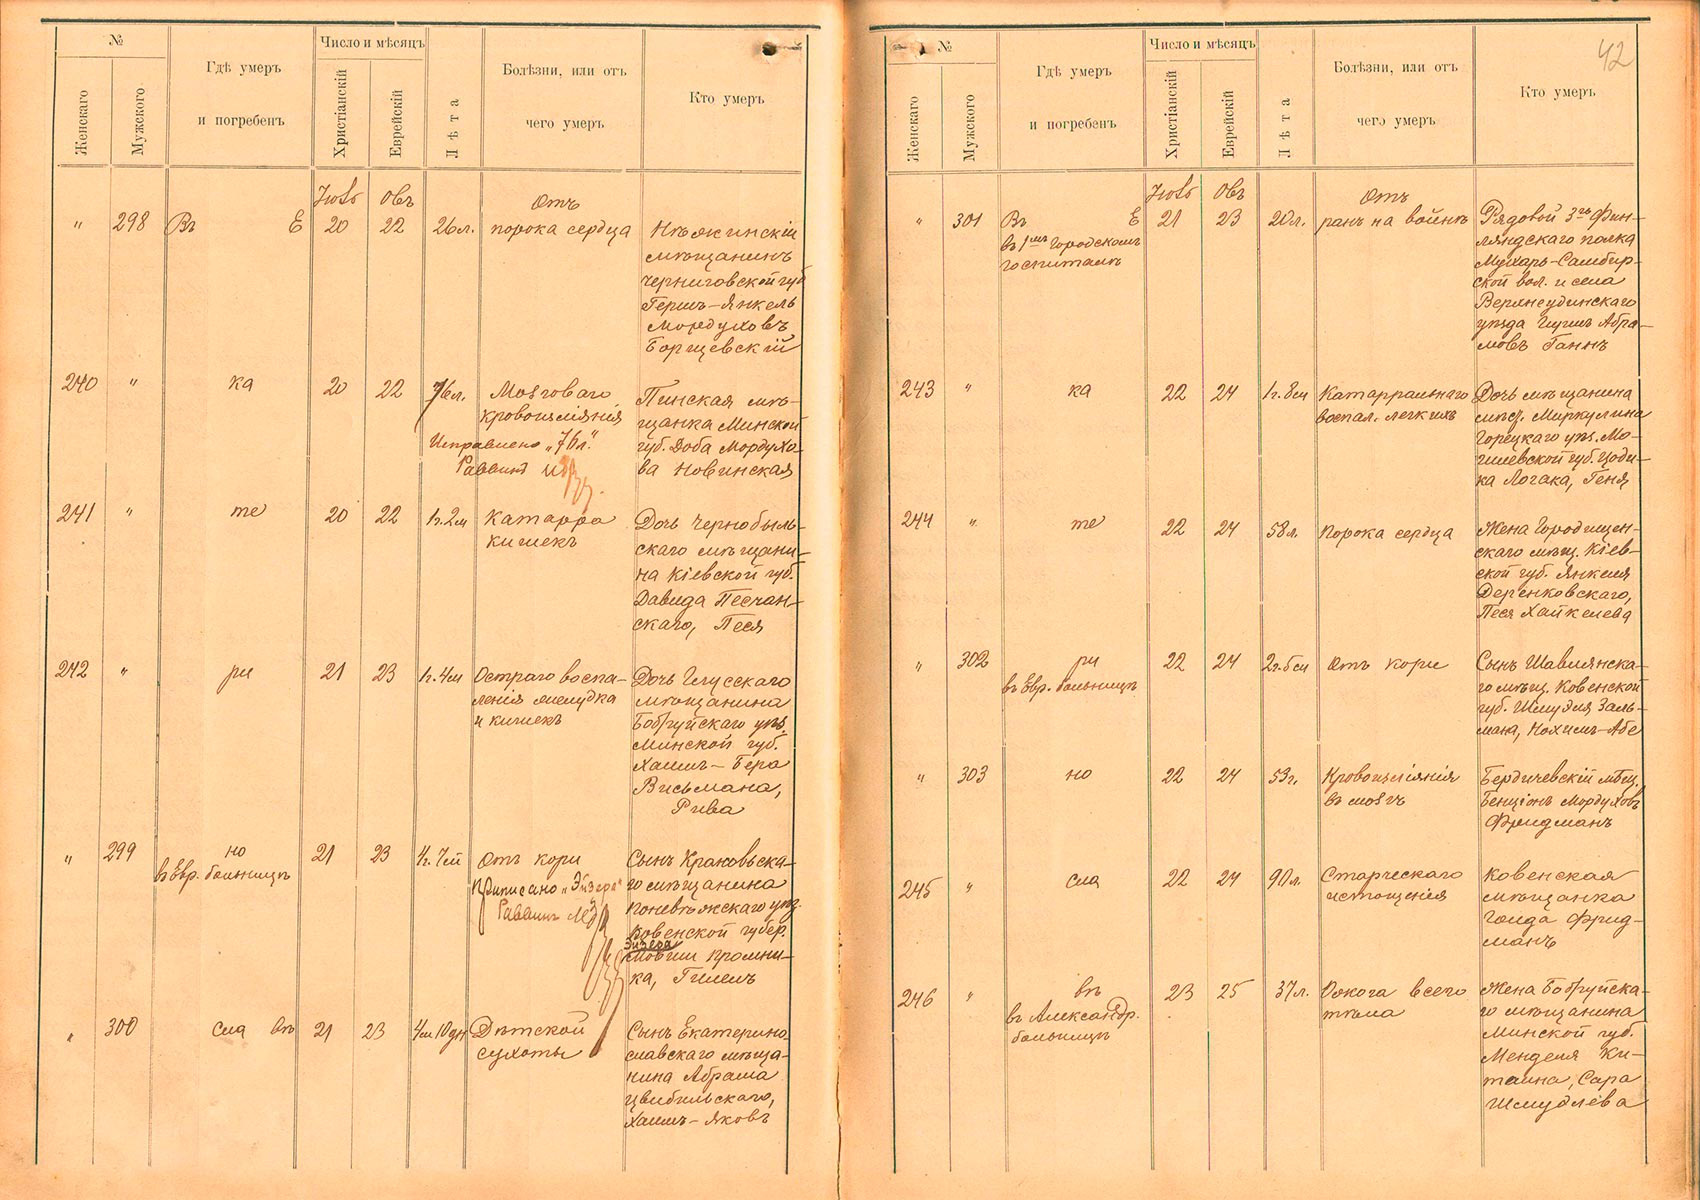 №
Женскаго
Мужского
Гдѣ умеръ
и погребенъ
Число и мѣсяцъ
Христіанскій
Еврейскій
Лѣта
Болѣзни, или отъ
чего умеръ
Кто умеръ
Отъ
" 298 Въ Е 20 22 26 л. порока сердца
Нѣжинскій
мѣщанинъ
Черниговской губ
Гершъ-Янкель
Мордуховъ
Борщевскій
240 " ка 20 22 76 л. Мозговаго
кровоизліянія
Исправлено „76 л."
Раввинъ
Пинская мѣ-
щанка Минской
губ. Доба Мордухо-
ва Новинская
241 " те 20 22 1 г. 2 м Катарра
кишекъ
Дочь Чернобыль-
скаго мѣщани-
на Кіевской губ.
Давида Песчан-
скаго, Песя
242 " ри 21 23 1 г. 4 м Остраго воспа-
ленія желудка
и кишекъ
Дочь Глусскаго
мѣщанина
Бобруйскаго уѣз.
Минской губ.
Хаимъ-Бера
Висьмана,
Рива
" 299 но 21 23 4 г. 7 м Отъ кори
въ Евр. больницѣ
Приписано „Эйзера"
Раввинъ
Сынъ Краковьска-
го мѣщанина
Поневѣжскаго уѣз.
Ковенской губер.
Эйзера
Мовши Промни-
ка, Гилелъ
" 300 сла въ 21 23 4 м 10 дн Дѣтской
сухоты
Сынъ Екатерино-
славскаго мѣща-
нина Абрама
Цвибильскаго,
Хаимъ-Яковъ
42
№
Женскаго
Мужского
Гдѣ умеръ
и погребенъ
Число и мѣсяцъ
Христіанскій
Еврейскій
Лѣта
Болѣзни, или отъ
чего умеръ
Кто умеръ
Отъ
" 301 Въ Е 21 23 20 л. ранъ на войнѣ
въ 1мъ городскомъ
госпиталѣ
Рядовой 3го Фин-
ляндскаго полка
Мухоръ-Самбир-
ской вол. и села
Верхнеудинскаго
уѣзда Гиршъ Абра-
мовъ Ганнъ
243 " ка 22 24 1 г. 8 м Катарральнаго
воспал. легкихъ
Дочь мѣщанина
мѣст. Миркулина
Горецкаго уѣз. Мо-
гилевской губ. Цоди-
ка Логака, Геня
244 " те 22 24 58 л. Порока сердца
Жена Городищен-
скаго мѣщ. Кіев-
ской губ. Янкеля
Деренковскаго,
Песя Хайкелева
" 302 ри 22 24 2 г. 6 м Отъ кори
въ Евр. больницѣ
Сынъ Шавлянска-
го мѣщ. Ковенской
губ. Шмуэля Заль-
мана, Нохимъ-Абе
" 303 но 22 24 53 г. Кровоизліянія
въ мозгъ
Бердичевскій мѣщ.
Бенціонъ Мордуховъ
Фридманъ
245 " сла 22 24 90 л. Старческаго
истощенія
Ковенская
мѣщанка
Голда Фрид-
манъ
246 " въ 23 25 37 л. Ожога всего
тѣла
въ Александр.
больницѣ
Жена Бобруйска-
го мѣщанина
Минской губ.
Менделя Ки-
таина, Сара
Шмуэлева